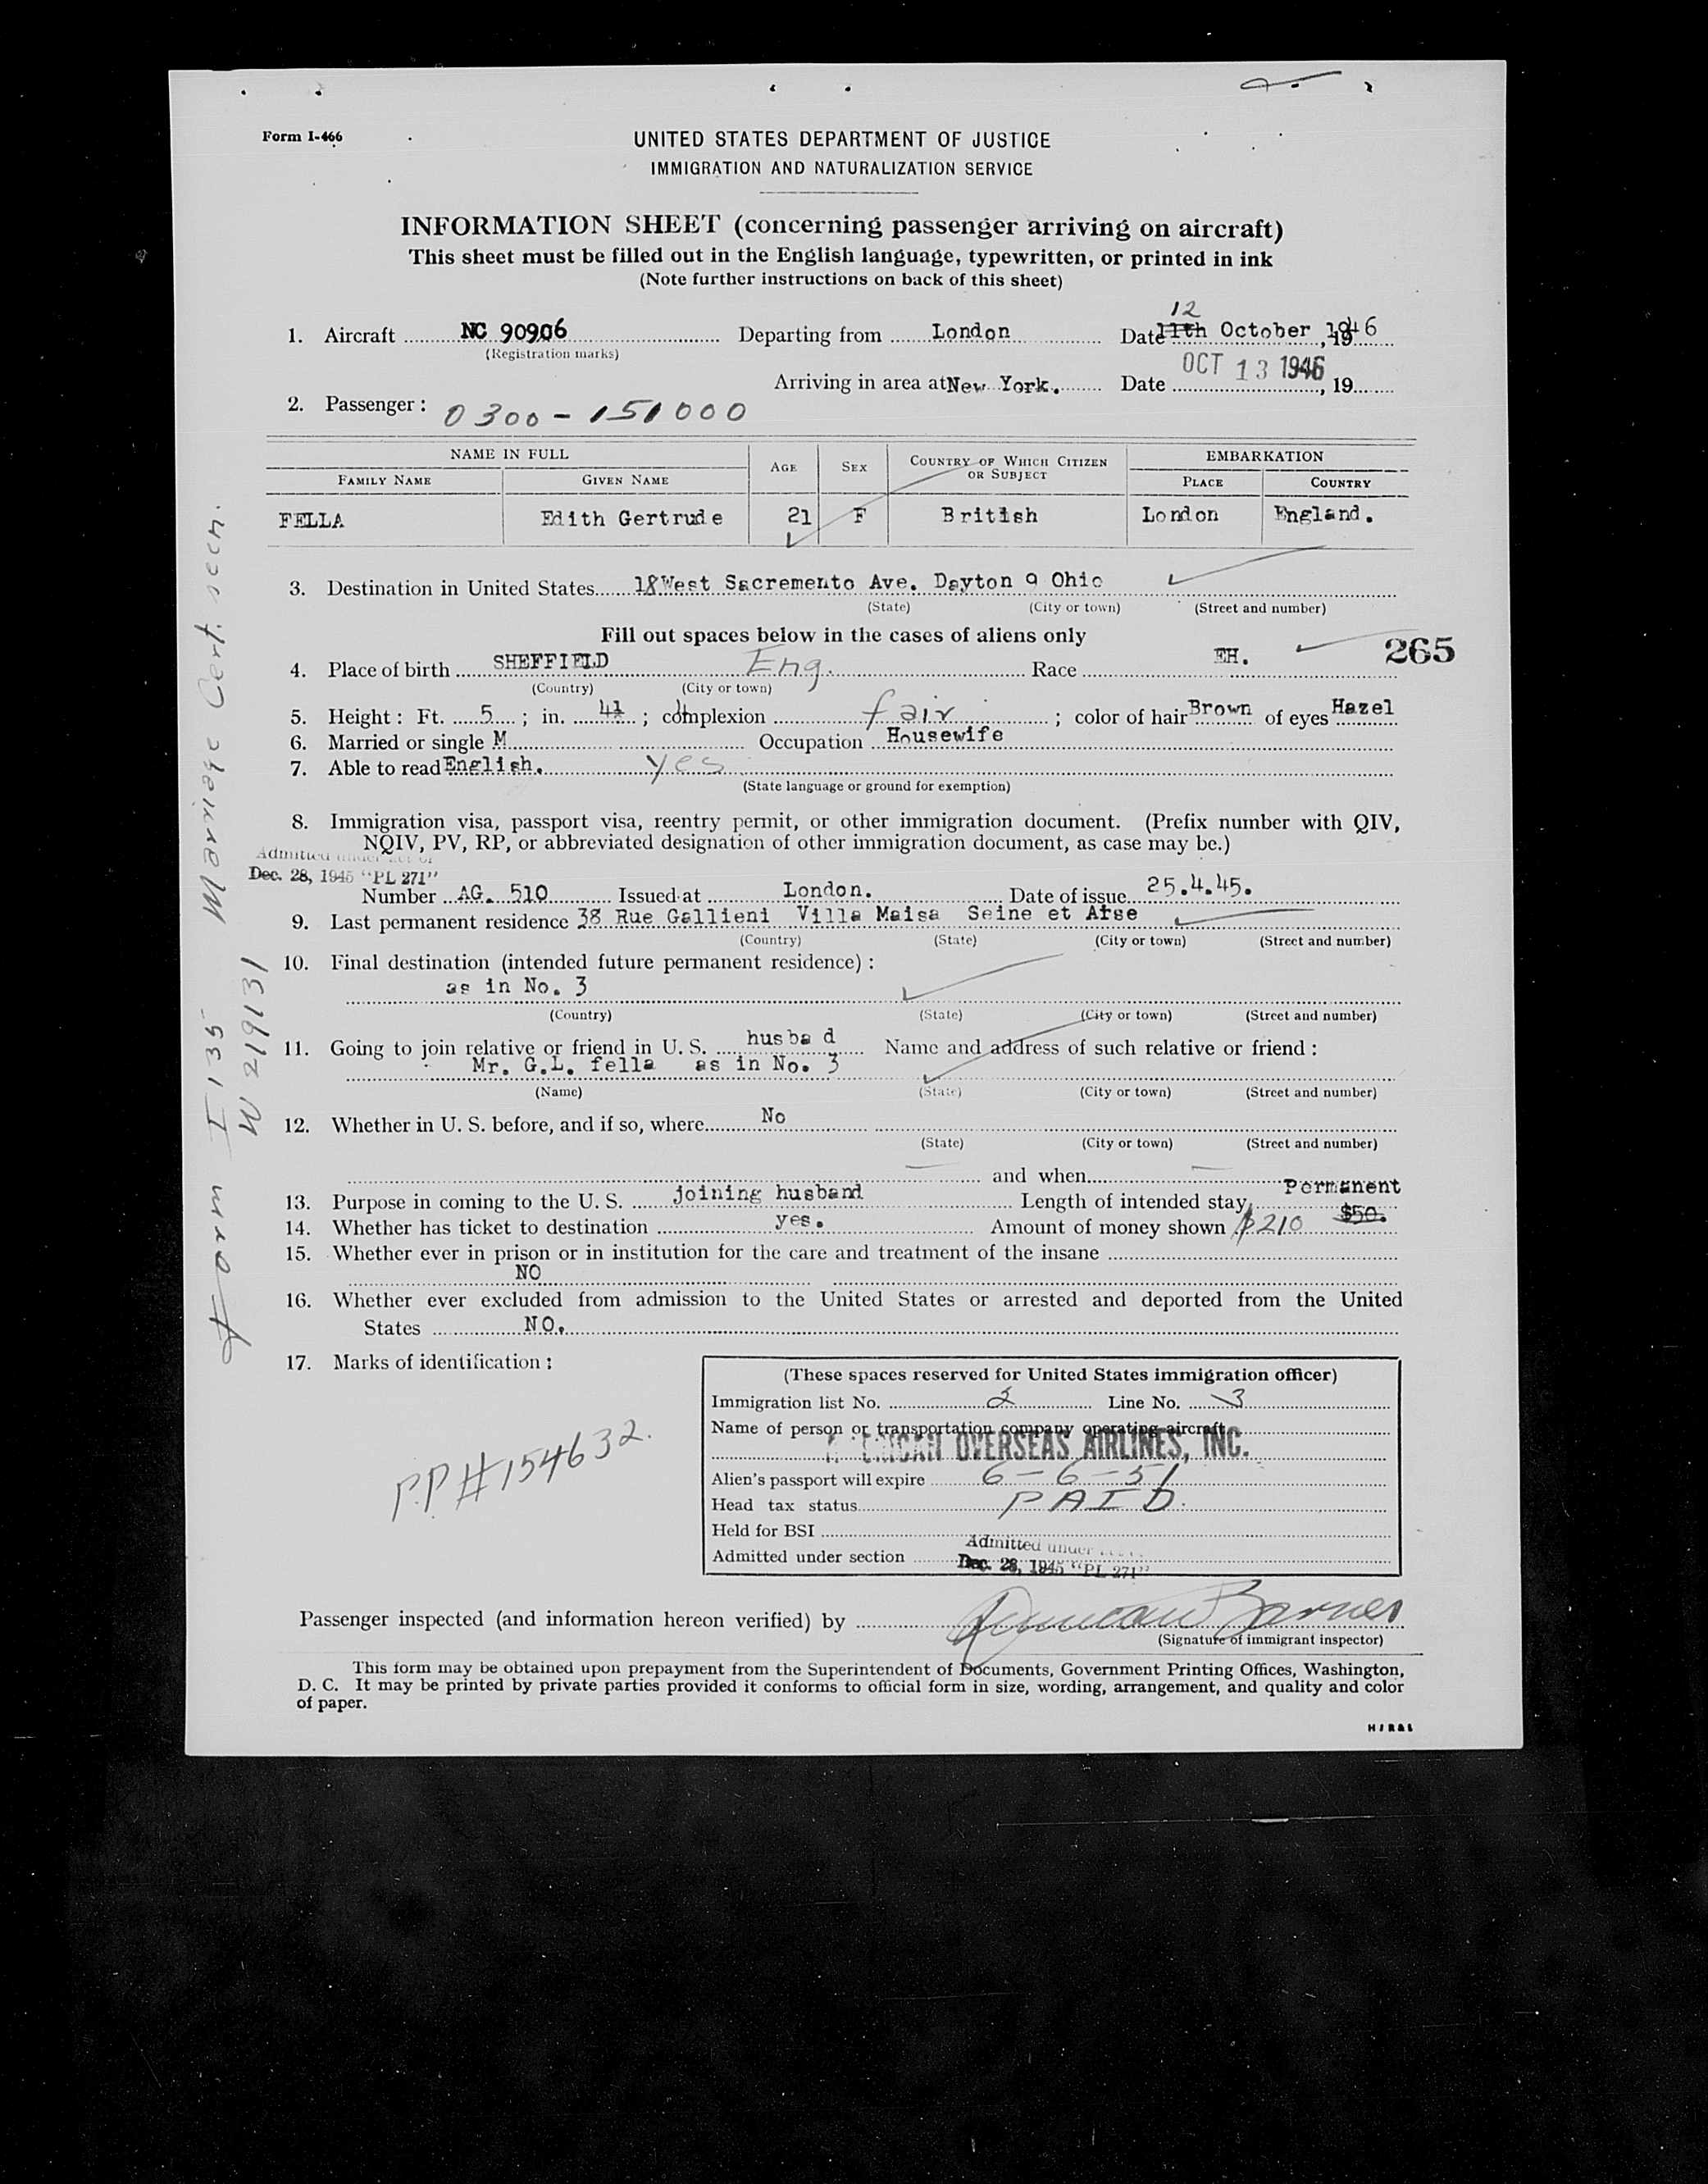 Form I-466
UNITED STATES DEPARTMENT OF JUSTICE
IMMIGRATION AND NATURALIZATION SERVICE
INFORMATION SHEET (concerning passenger arriving on aircraft)
This sheet must be filled out in the English language, typewritten, or printed in ink
(Note further instructions on back of this sheet)
12
1. Aircraft NC 90906 Departing from London Date 11th October, 1946
(Registration marks)
Arriving in area at New York. Date OCT 13 1946, 19
2. Passenger: 0300 - 151000
NAME IN FULL AGE SEX COUNTRY OF WHICH CITIZEN OR SUBJECT EMBARKATION
FAMILY NAME GIVEN NAME PLACE COUNTRY
FELLA Edith Gertrude 21 F British London England.
3. Destination in United States 18 West Sacremento Ave. Dayton 9 Ohio
(State) (City or town) (Street and number)
Fill out spaces below in the cases of aliens only
265
4. Place of birth SHEFFIELD Eng. Race EH.
(Country) (City or town)
5. Height: Ft. 5; in. 4; complexion fair; color of hair Brown of eyes Hazel
6. Married or single M Occupation Housewife
7. Able to read English. Yes
(State language or ground for exemption)
8. Immigration visa, passport visa, reentry permit, or other immigration document. (Prefix number with QIV,
NQIV, PV, RP, or abbreviated designation of other immigration document, as case may be.)
Admitted under act of
Dec. 28, 1945 "PL 271"
Number AG. 510 Issued at London. Date of issue 25.4.45.
9. Last permanent residence 38 Rue Gallieni Villa Maisa Seine et Atse
(Country) (State) (City or town) (Street and number)
10. Final destination (intended future permanent residence):
as in No. 3
(Country) (State) (City or town) (Street and number)
11. Going to join relative or friend in U. S. husba d Name and address of such relative or friend:
Mr. G.L. fella as in No. 3
(Name) (State) (City or town) (Street and number)
12. Whether in U. S. before, and if so, where No
(State) (City or town) (Street and number)
and when
13. Purpose in coming to the U. S. joining husband Length of intended stay Permanent
14. Whether has ticket to destination yes. Amount of money shown $210 $50.
15. Whether ever in prison or in institution for the care and treatment of the insane
NO
16. Whether ever excluded from admission to the United States or arrested and deported from the United
States NO.
17. Marks of identification:
PP#154632.
(These spaces reserved for United States immigration officer)
Immigration list No. 2 Line No. 3
Name of person or transportation company operating aircraft
AMERICAN OVERSEAS AIRLINES, INC.
Alien's passport will expire 6-6-51
Head tax status PAID.
Held for BSI
Admitted under section Admitted under
Dec. 28, 1945 "PL 271"
Passenger inspected (and information hereon verified) by
(Signature of immigrant inspector)
This form may be obtained upon prepayment from the Superintendent of Documents, Government Printing Offices, Washington,
D. C. It may be printed by private parties provided it conforms to official form in size, wording, arrangement, and quality and color
of paper.
Form I 135 Marriage Cert. seen.
W 219131